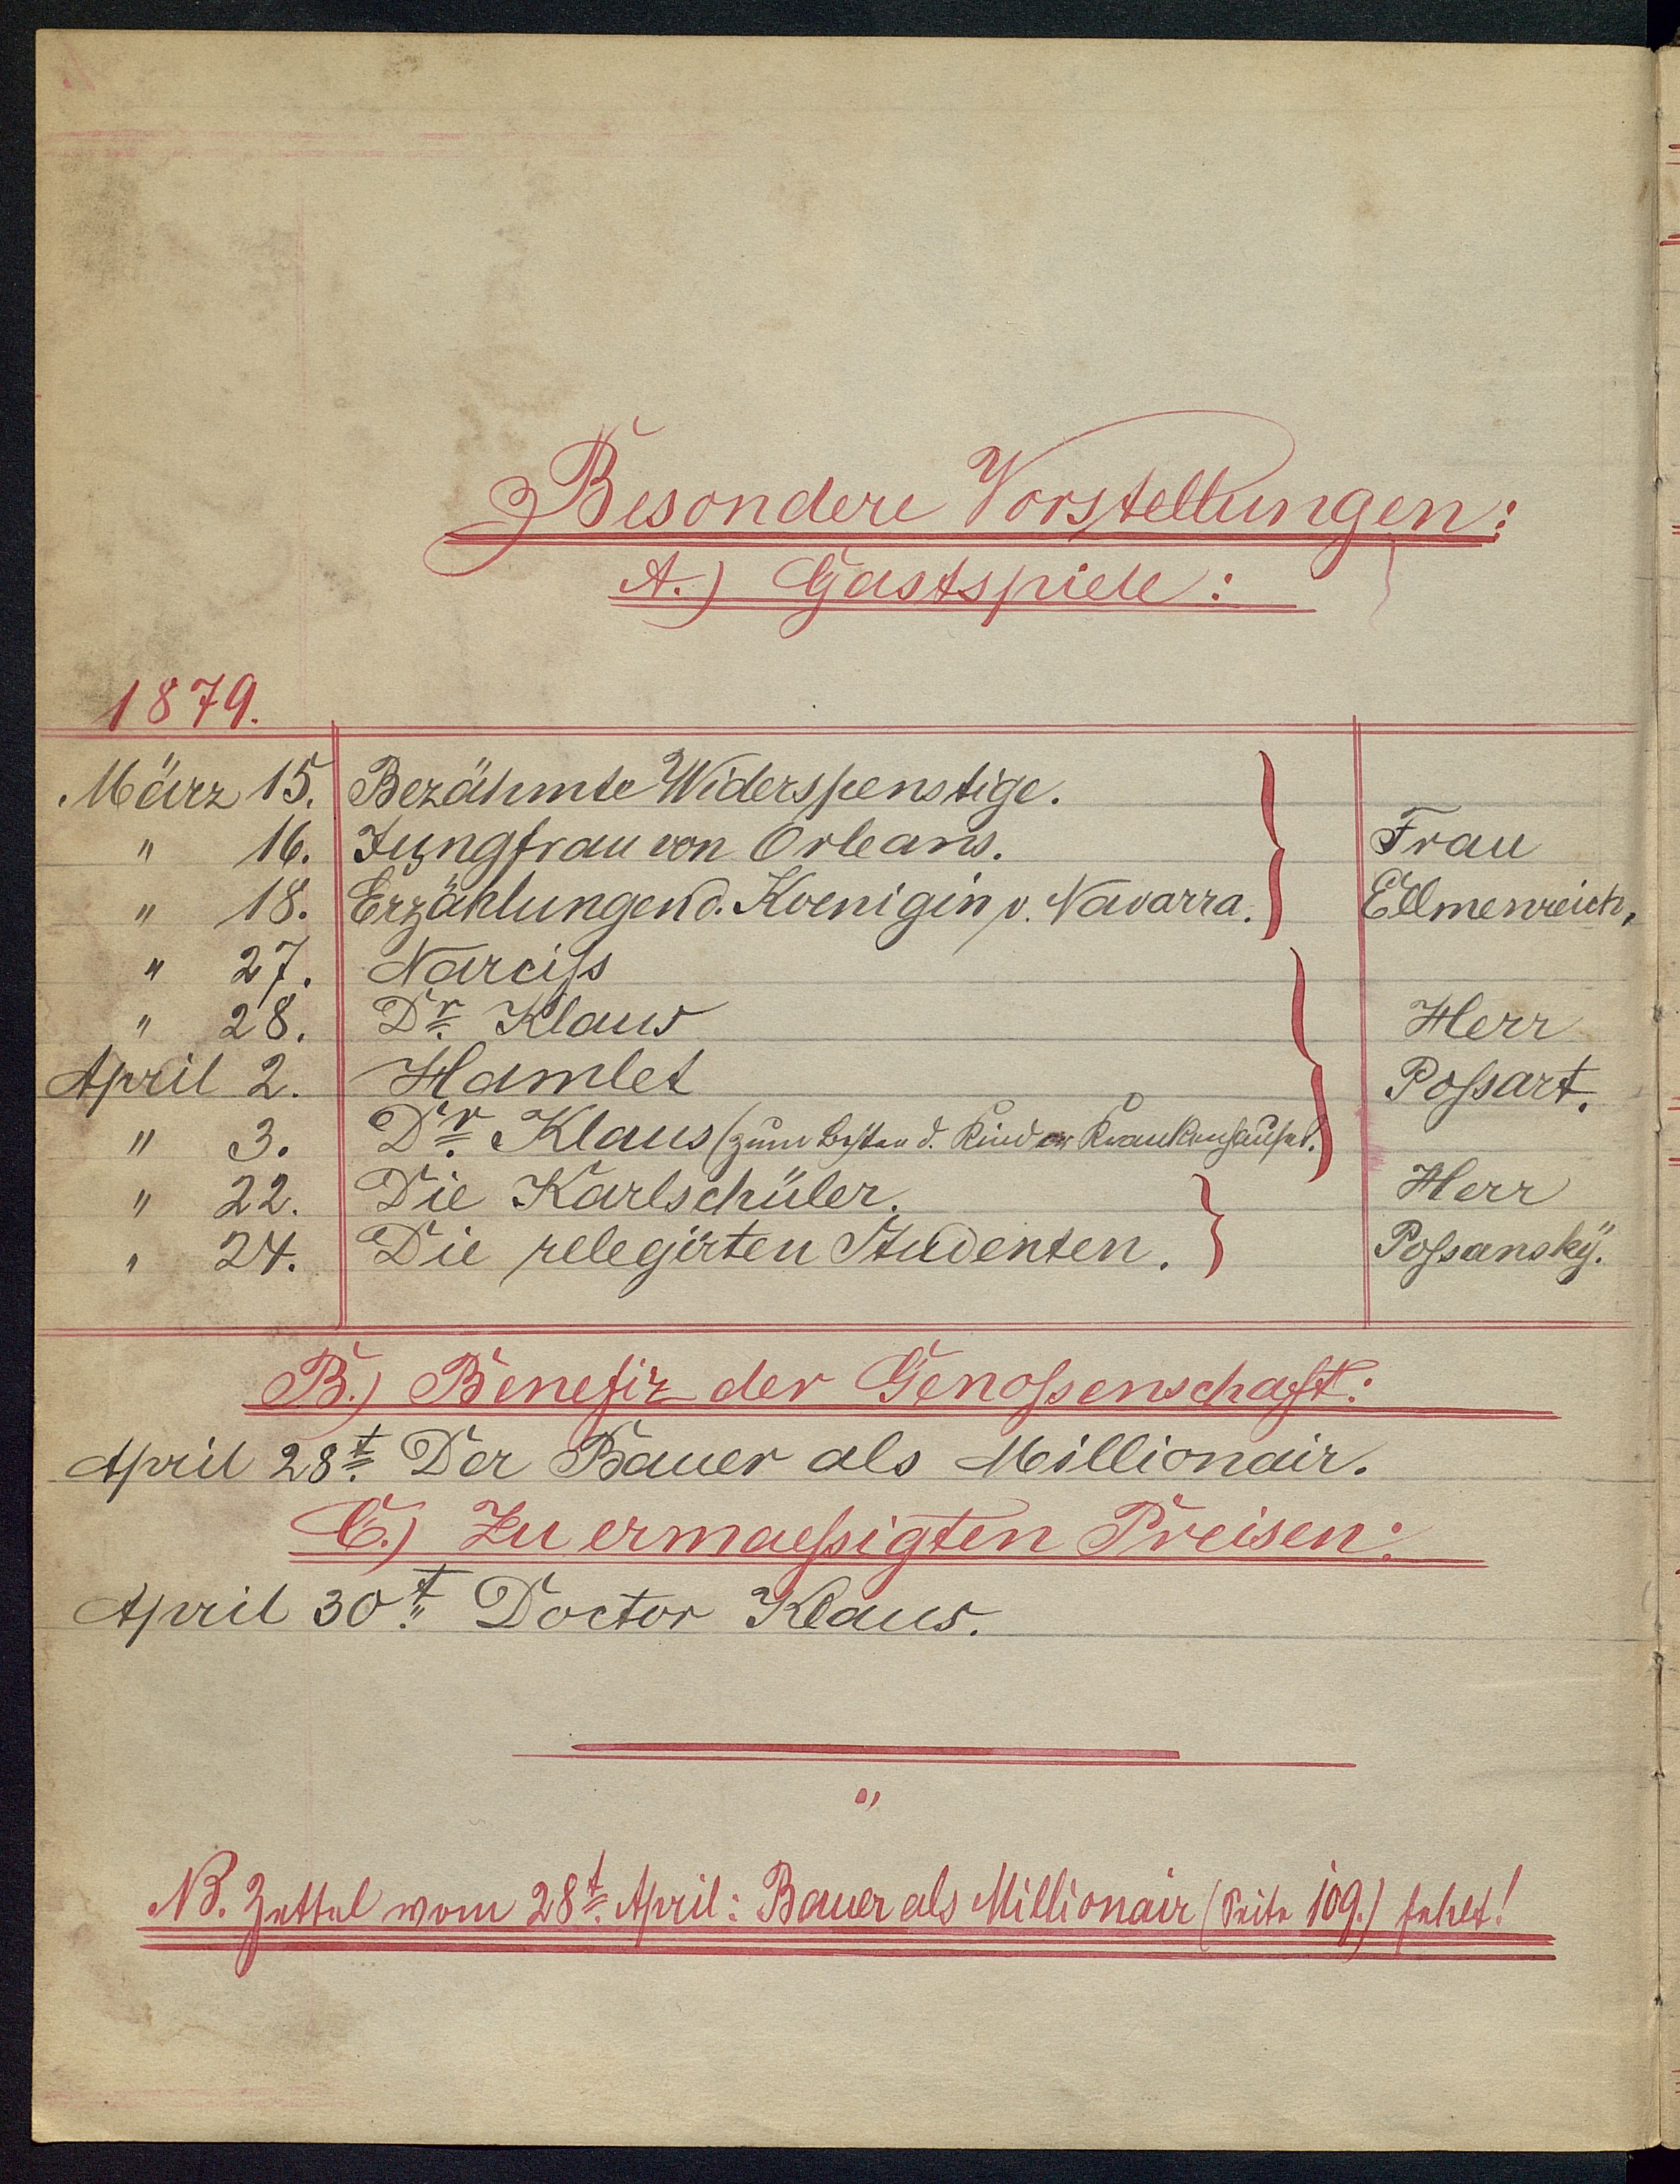 Besondere Vorstellungen:
A.) Gastspiele:
1879.
März 15. Bezähmte Widerspenstige.
" 16. Jungfrau von Orleans. Frau
" 18. Erzählungen d. Koenigin v. Navarra. Ellmenreich,
" 27. Narciſs
" 28. Dr. Klaus Herr
April 2. Hamlet Poſsart.
" 3. Dr. Klaus (zum besten d. Kinder Krankenhauses.
" 22. Die Karlschüler. Herr
" 24. Die relegirten Studenten. Poſsanskÿ.
B.) Benefiz der Genoſsenschaft:
April 28t. Der Bauer als Millionair.
C.) Zu ermaeſsigten Preisen:
April 30t. Doctor Klaus.
"
NB. Zettel vom 28t. April: Bauer als Millionair (Seite 109.) fehlt!